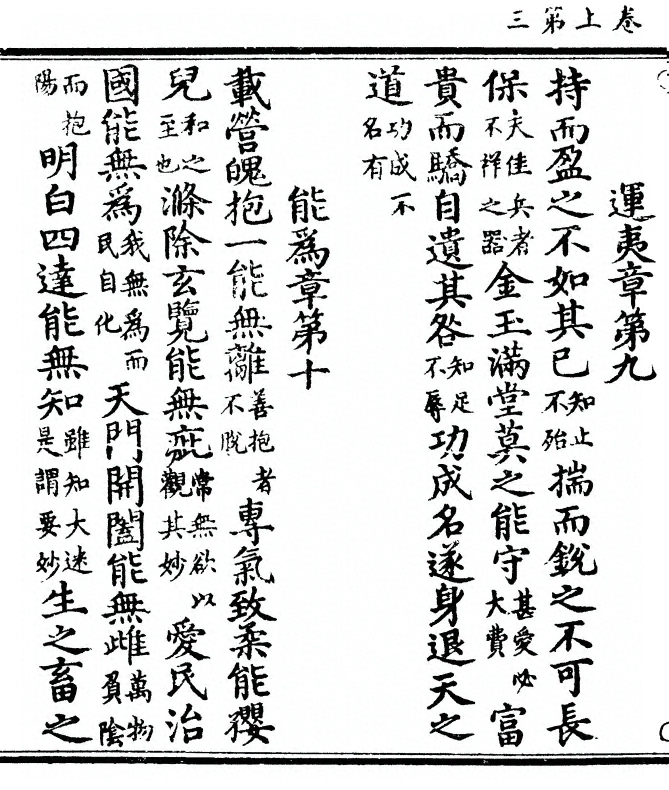 卷上第三
運夷章第九
持而盈之不如其已知止不殆揣而銳之不可長
保夫佳兵者不祥之器金玉滿堂莫之能守甚愛必大費富
貴而驕自遺其咎知足不辱功成名遂身退天之
道功成不名有
能爲章第十
載營魄抱一能無離善抱者不脫專氣致柔能孾
兒和之至也滌除玄覽能無疵常無欲以觀其妙愛民治
國能無爲我無爲而民自化天門開闔能無雌萬物負陰
而抱陽明白四達能無知雖知大迷是謂要妙生之畜之